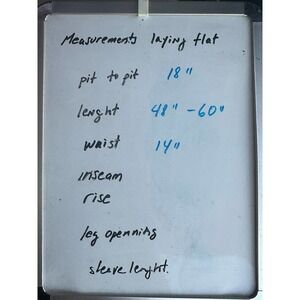 Measurements laying flat
pit to pit 18"
lenght 48" - 60"
waist 14"
inseam
rise
leg openning
sleeve lenght.